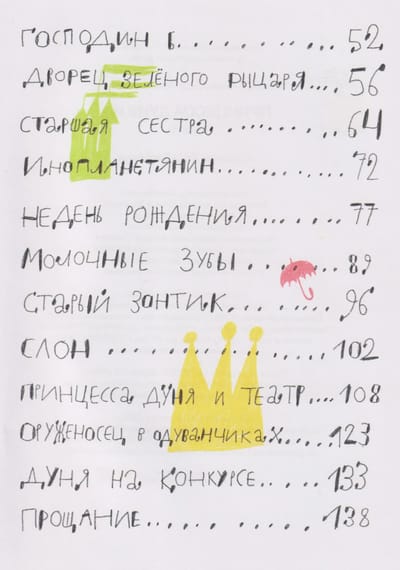 ГОСПОДИН Б.............52
ДВОРЕЦ ЗЕЛЁНОГО РЫЦАРЯ....56
СТАРШАЯ СЕСТРА...........64
ИНОПЛАНЕТЯНИН...........72
НЕДЕНЬ РОЖДЕНИЯ........77
МОЛОЧНЫЕ ЗУБЫ.........89
СТАРЫЙ ЗОНТИК.........96
СЛОН..................102
ПРИНЦЕССА ДУНЯ И ТЕАТР....108
ОРУЖЕНОСЕЦ В ОДУВАНЧИКАХ....123
ДУНЯ НА КОНКУРСЕ......133
ПРОЩАНИЕ.............138